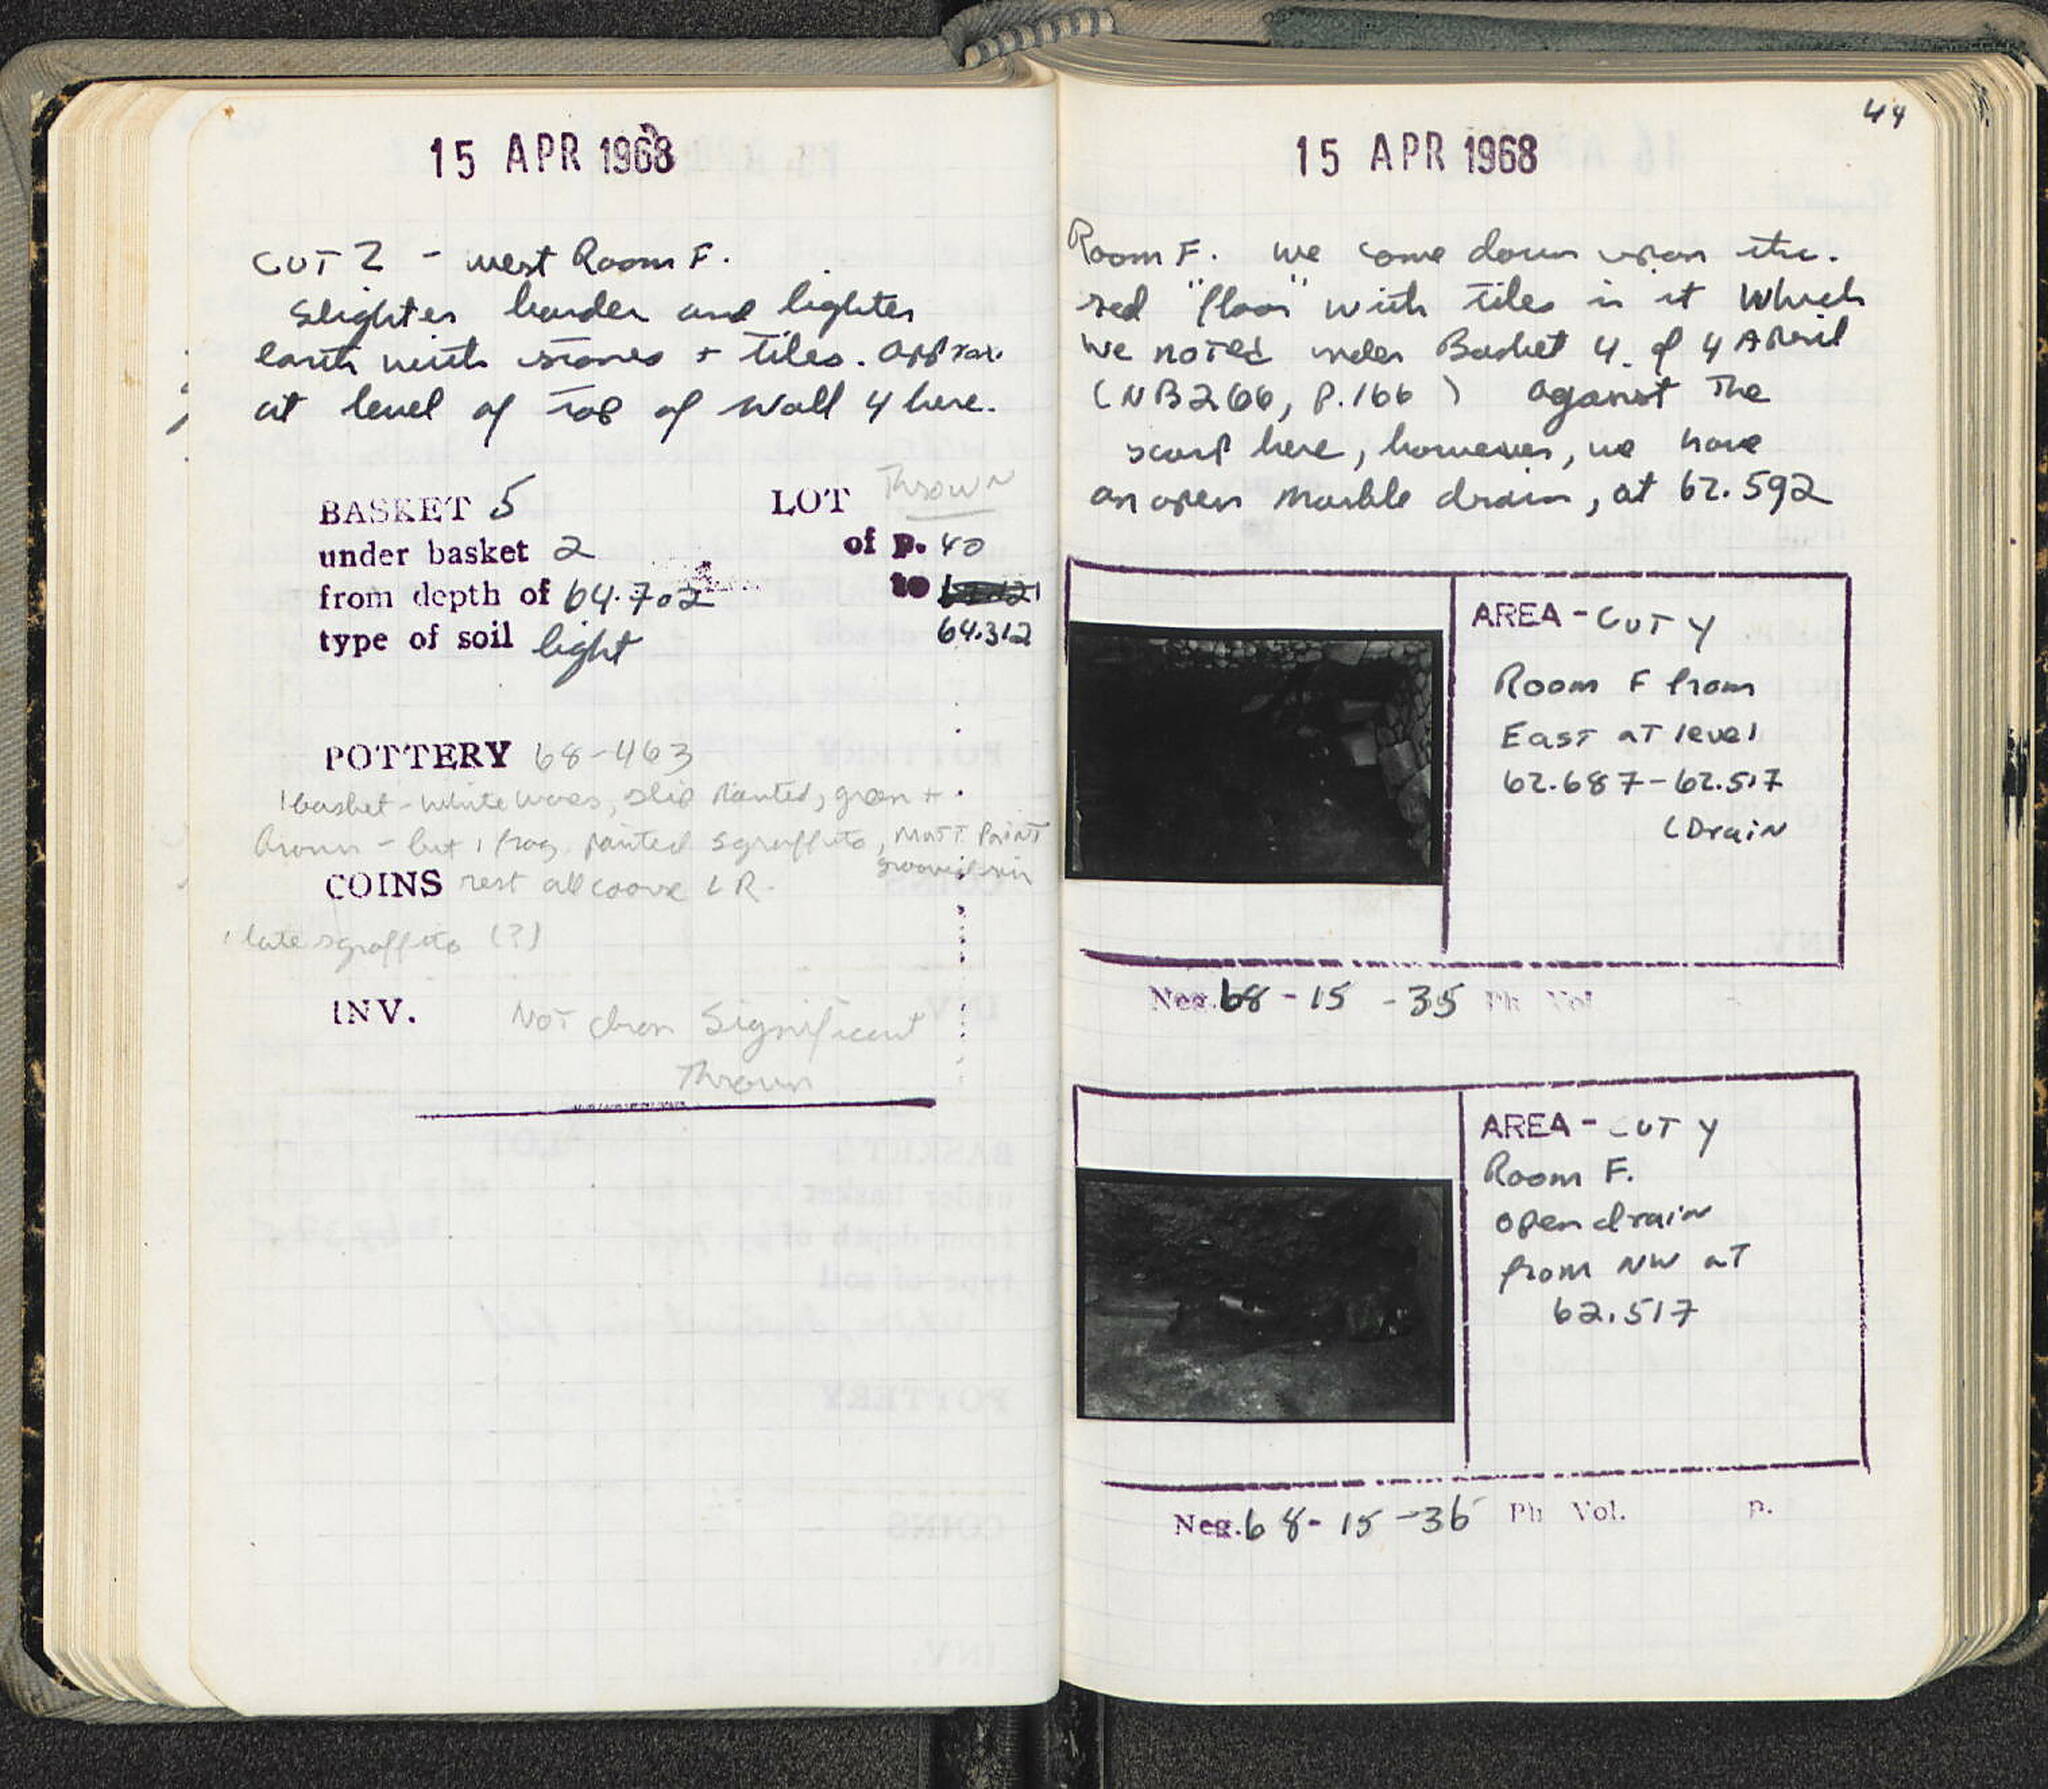 15 APR 1968
CUT Z - west Room F.
Slighter harder and lighter
earth with stones + tiles. Approx.
at level of top of Wall 4 here.
Thrown
BASKET 5 LOT
under basket 2 of p. 40
from depth of 64.702 to
type of soil light 64.312
POTTERY 68-463
1 basket - white wares, slip painted, green +
brown - but 1 frag. painted sgraffito, Matt Paint
COINS rest all coarse LR.
1 late sgraffito (?)
INV. Not chron Significant
Thrown
44
15 APR 1968
Room F. we come down upon the
red "floor" with tiles in it Which
we noted under Basket 4 of 4 April
(NB 266, P.166) Against The
scarp here, however, we have
an open marble drain, at 62.592
AREA - CUT Y
Room F from
East at level
62.687-62.517
(Drain
Neg. 68-15-35 Ph Vol
AREA - CUT Y
Room F.
open drain
from NW at
62.517
Neg. 68-15-36 Ph Vol. p.